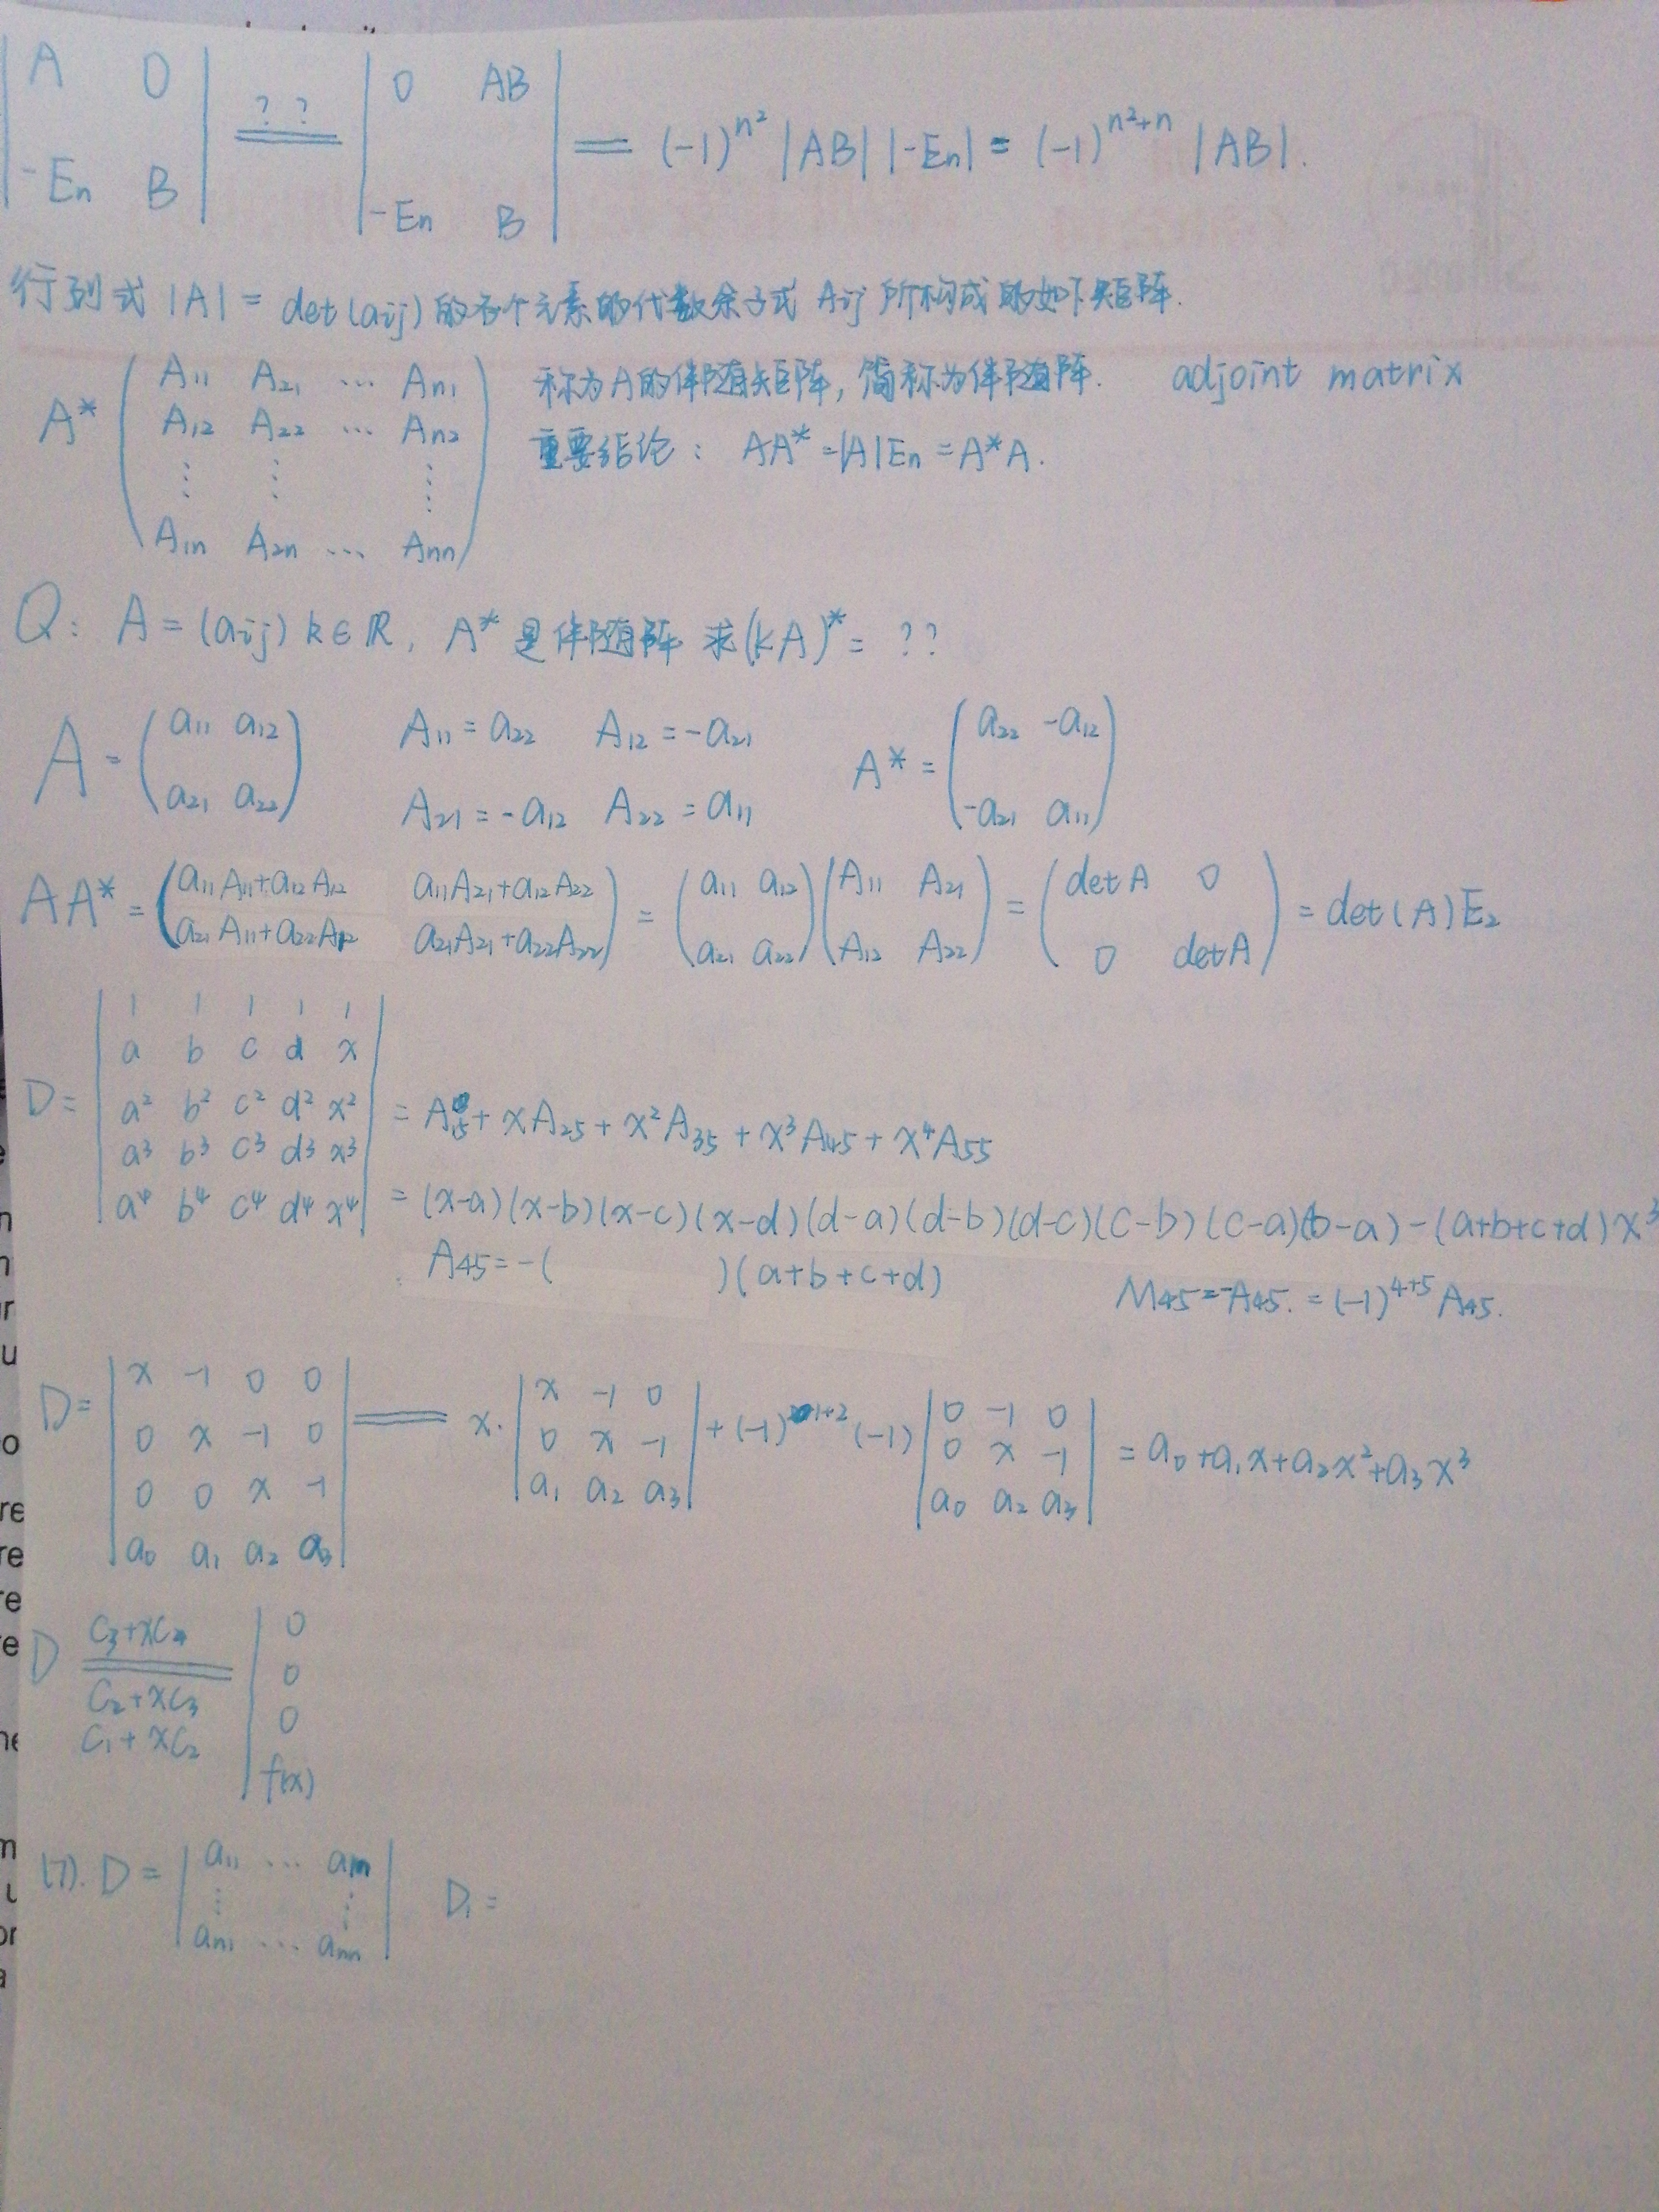 | A 0 ; -En B | =?? | 0 AB ; -En B | = (-1)^{n²} |AB| |-En| = (-1)^{n²+n} |AB|.
行列式 |A| = det(aij) 的各个元素的代数余子式 Aij 所构成的如下矩阵.
A* ( A11 A21 … An1 ; A12 A22 … An2 ; ⋮ ⋮ ⋮ ; A1n A2n … Ann )
称为A的伴随矩阵, 简称为伴随阵. adjoint matrix
重要结论: AA* = |A|En = A*A.
Q: A = (aij) k∈ℝ, A* 是伴随阵 求(kA)* = ??
A = ( a11 a12 ; a21 a22 ) A11 = a22 A12 = -a21 A21 = -a12 A22 = a11 A* = ( a22 -a12 ; -a21 a11 )
AA* = ( a11A11+a12A12 a11A21+a12A22 ; a21A11+a22A12 a21A21+a22A22 ) = ( a11 a12 ; a21 a22 )( A11 A21 ; A12 A22 ) = ( detA 0 ; 0 detA ) = det(A)E2
D = | 1 1 1 1 1 ; a b c d x ; a² b² c² d² x² ; a³ b³ c³ d³ x³ ; a⁴ b⁴ c⁴ d⁴ x⁴ | = A15 + xA25 + x²A35 + x³A45 + x⁴A55
= (x-a)(x-b)(x-c)(x-d)(d-a)(d-b)(d-c)(c-b)(c-a)(b-a) - (a+b+c+d)x³
A45 = -( )(a+b+c+d) M45 = -A45. = (-1)^{4+5} A45.
D = | x -1 0 0 ; 0 x -1 0 ; 0 0 x -1 ; a0 a1 a2 a3 | = x· | x -1 0 ; 0 x -1 ; a1 a2 a3 | + (-1)^{1+2} (-1) | 0 -1 0 ; 0 x -1 ; a0 a2 a3 | = a0 + a1x + a2x² + a3x³
D = C3+xC4 C2+xC3 C1+xC2 | 0 ; 0 ; 0 ; f(x)
(7). D = | a11 … a1n ; ⋮ ⋮ ; an1 … ann | D1 =